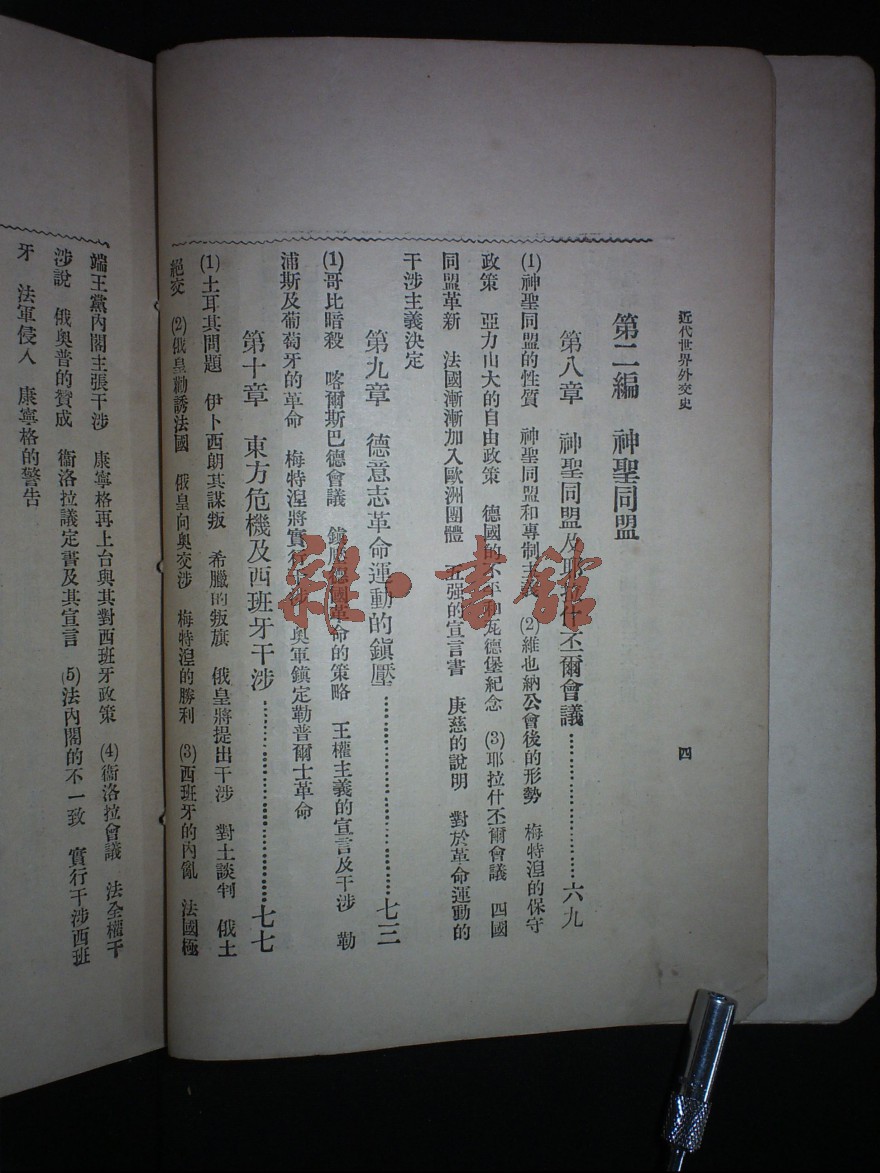 近代世界外交史
四
第二編 神聖同盟
第八章 神聖同盟及耶拉什丕爾會議……………………六九
(1)神聖同盟的性質 神聖同盟和專制主義 (2)維也納公會後的形勢 梅特涅的保守
政策 亞力山大的自由政策 德國的不平和瓦德堡紀念 (3)耶拉什丕爾會議 四國
同盟革新 法國漸漸加入歐洲團體 五强的宣言書 庚慈的說明 對於革命運動的
干涉主義決定
第九章 德意志革命運動的鎮壓……………………七三
(1)哥比暗殺 喀爾斯巴德會議 鎮壓德國革命的策略 王權主義的宣言及干涉 勒
浦斯及葡萄牙的革命 梅特涅將實行干涉 奧軍鎮定勒普爾士革命
第十章 東方危機及西班牙干涉……………………七七
(1)土耳其問題 伊卜西朗其謀叛 希臘的叛旗 俄皇將提出干涉 對土談判 俄土
絕交 (2)俄皇勸誘法國 俄皇向奧交涉 梅特涅的勝利 (3)西班牙的內亂 法國極
端王黨內閣主張干涉 康寧格再上台與其對西班牙政策 (4)衞洛拉會議 法全權干
涉說 俄奧普的贊成 衞洛拉議定書及其宣言 (5)法內閣的不一致 實行干涉西班
牙 法軍侵入 康寧格的警告
雜·書館